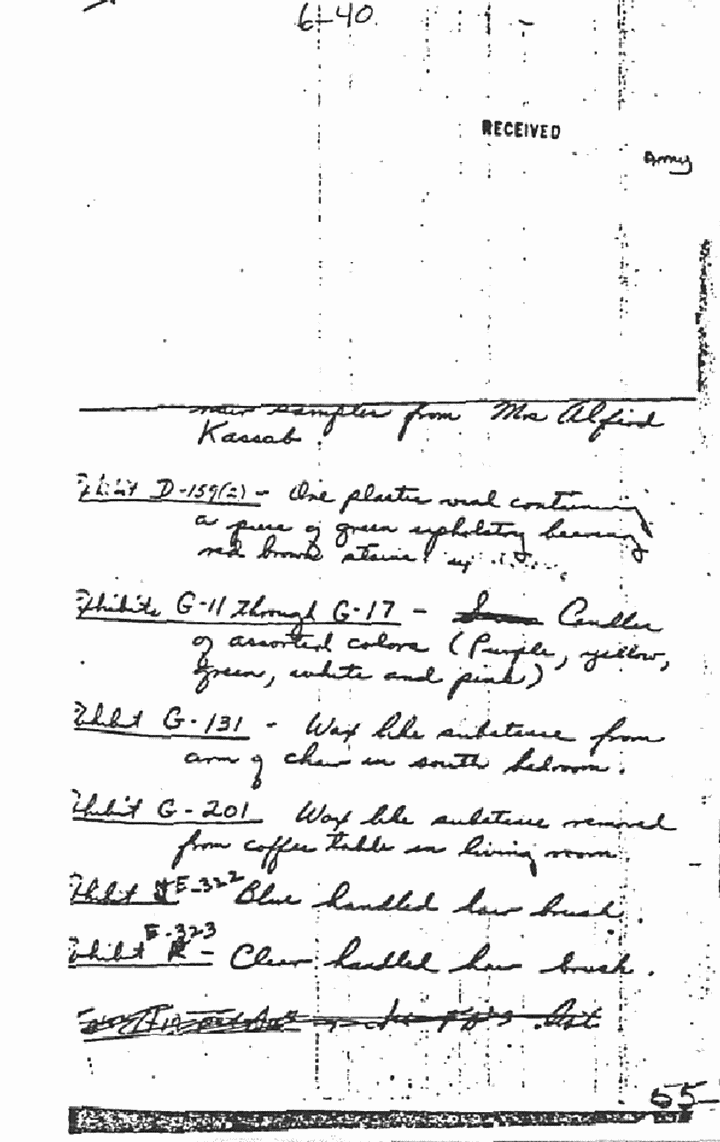 6-40
RECEIVED
Army
samples from Mrs Alfred
Kassab.
Exhibit D-159(2) - One plastic vial containing
a piece of green upholstery bearing
red brown stains.
Exhibits G-11 through G-17 - Candles
of assorted colors (Purple, yellow,
green, white and pink)
Exhibit G-131 - Wax like substance from
arm of chair in south bedroom.
Exhibit G-201 Wax like substance removed
from coffee table in living room.
Exhibit E-322 Blue handled hair brush.
E-323
Exhibit K - Clear handled hair brush.
55-